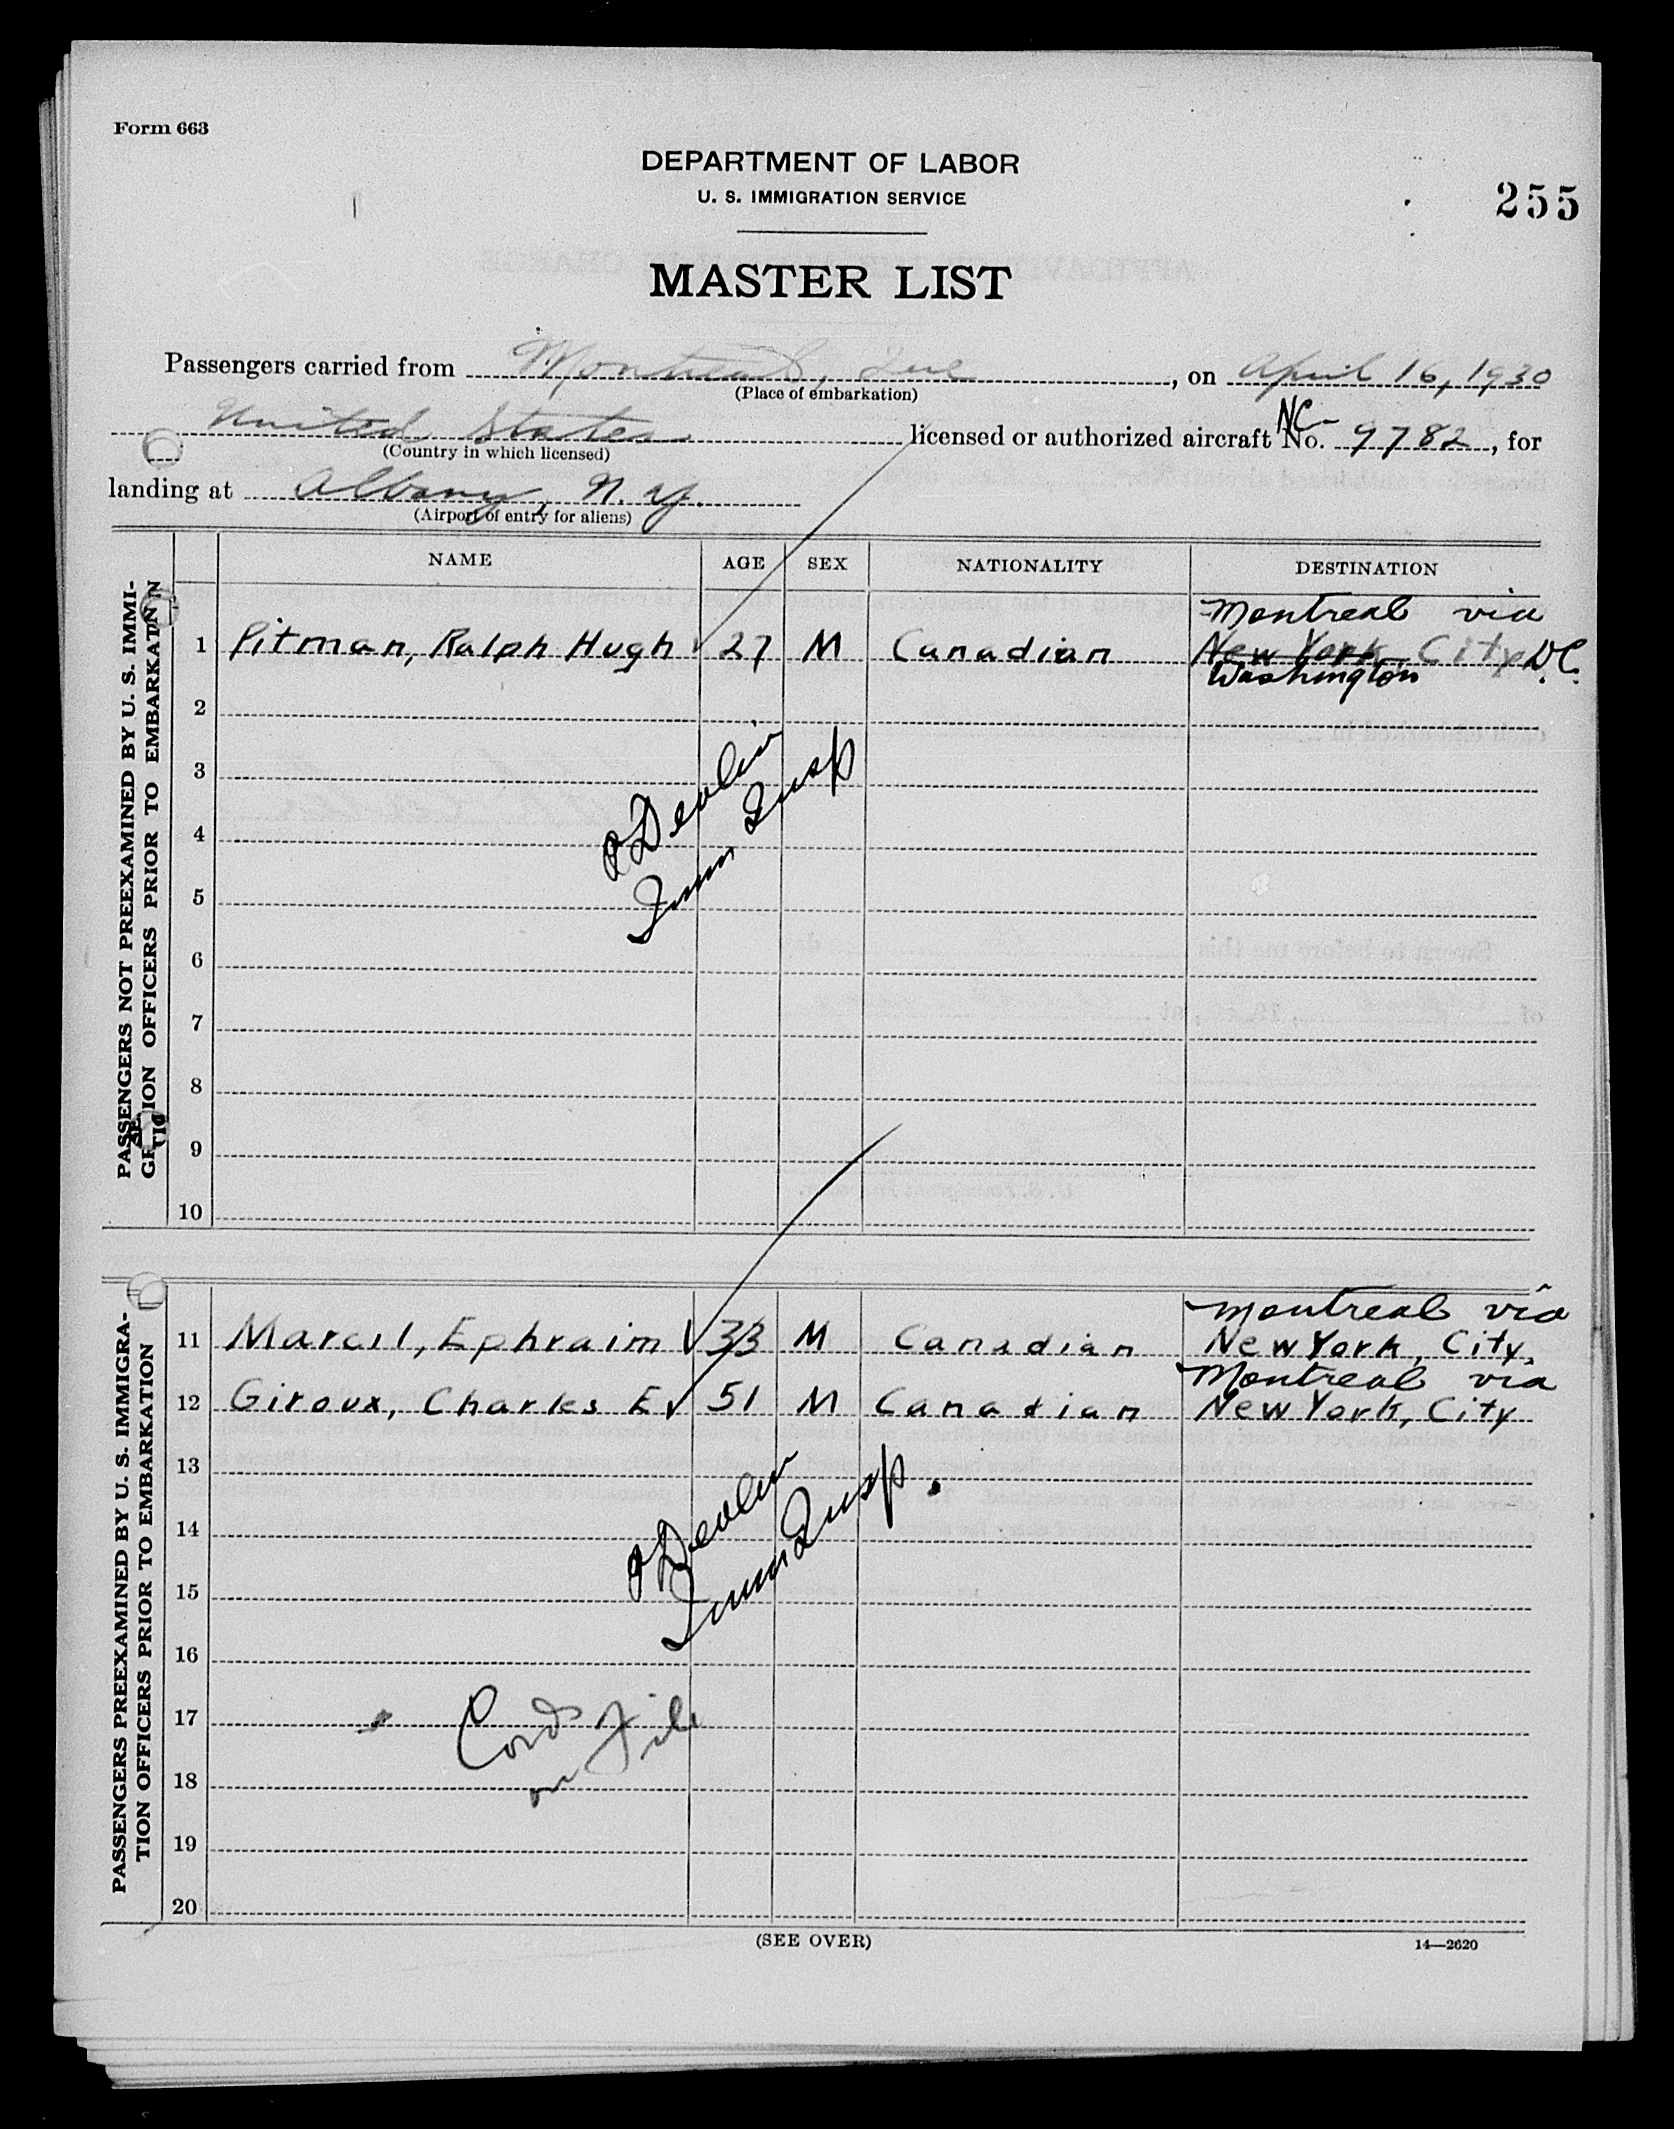 Form 663
DEPARTMENT OF LABOR
U. S. IMMIGRATION SERVICE
255
MASTER LIST
Passengers carried from Montreal, Que, on April 16, 1930
(Place of embarkation)
United States licensed or authorized aircraft No. NC- 9782, for
(Country in which licensed)
landing at Albany, N. Y.
(Airport of entry for aliens)
NAME AGE SEX NATIONALITY DESTINATION
PASSENGERS NOT PREEXAMINED BY U. S. IMMI-
GRATION OFFICERS PRIOR TO EMBARKATION
Montreal via
1 Pitman, Ralph Hugh 27 M Canadian New York, City D.C.
Washington
2
3
4
5
6
7
8
9
10
Devlin
Imm Insp
PASSENGERS PREEXAMINED BY U. S. IMMIGRA-
TION OFFICERS PRIOR TO EMBARKATION
Montreal via
11 Marcil, Ephraim 33 M Canadian New York, City,
Montreal via
12 Giroux, Charles E 51 M Canadian New York, City
13
14
15
16
17
18
19
20
Devlin
Imm Insp.
Cards File
on
(SEE OVER)
14—2620